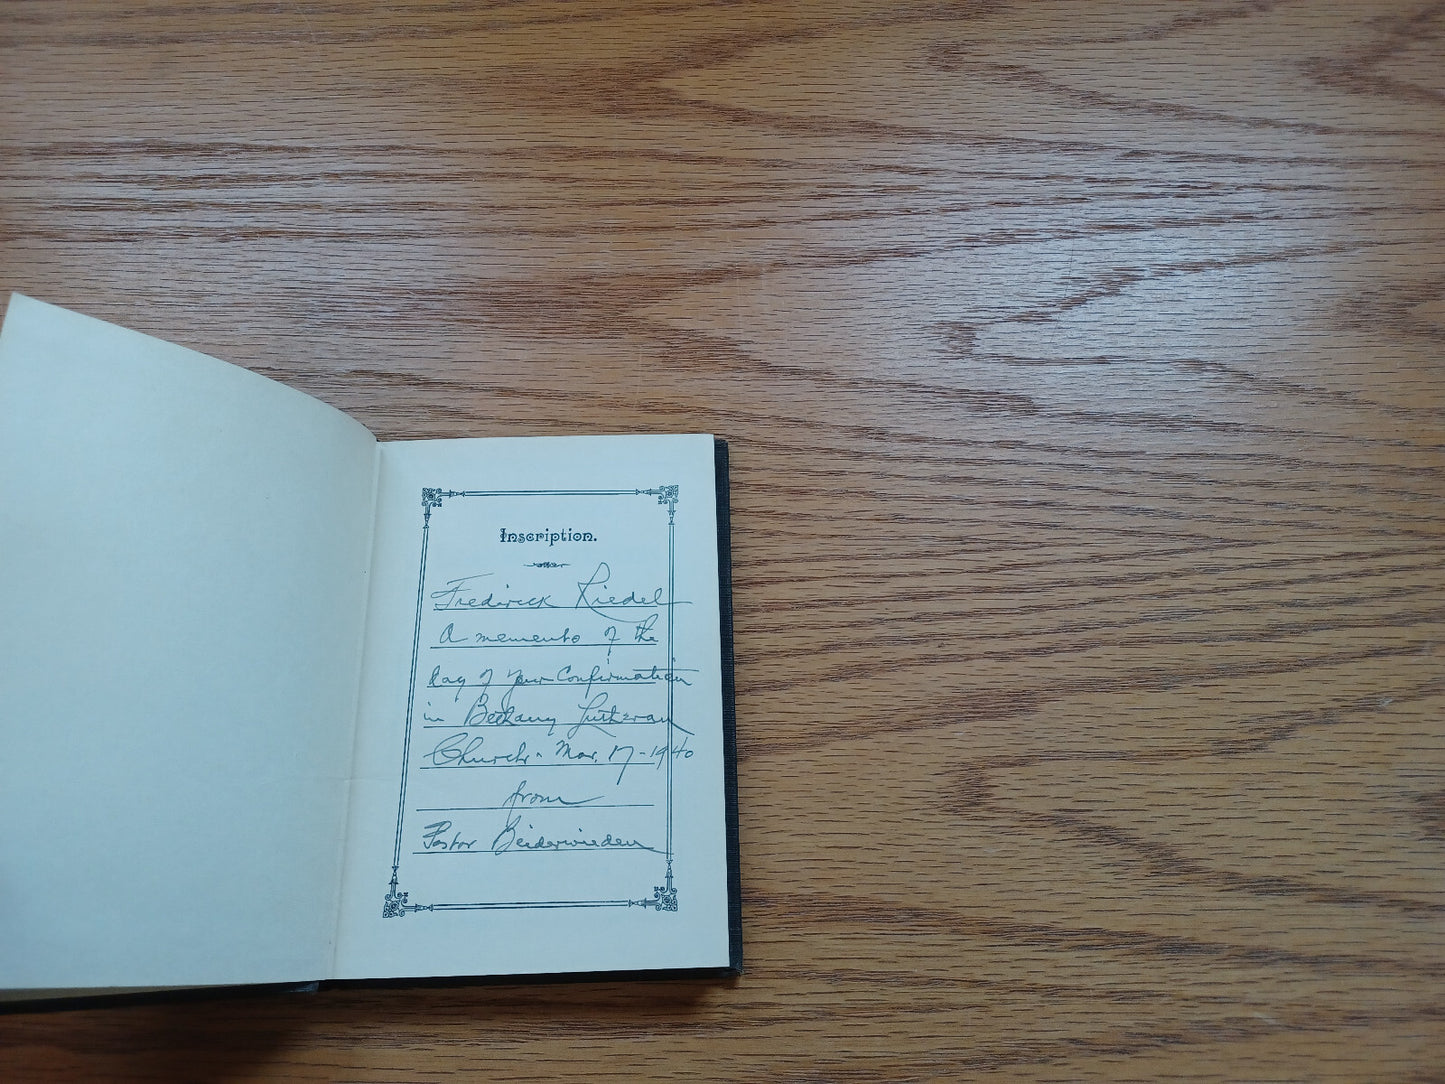 Inscription.
Frederick Riedel
A memento of the
day of your Confirmation
in Bethany Lutheran
Church - Mar. 17 - 1940
from
Pastor Beiderwieden